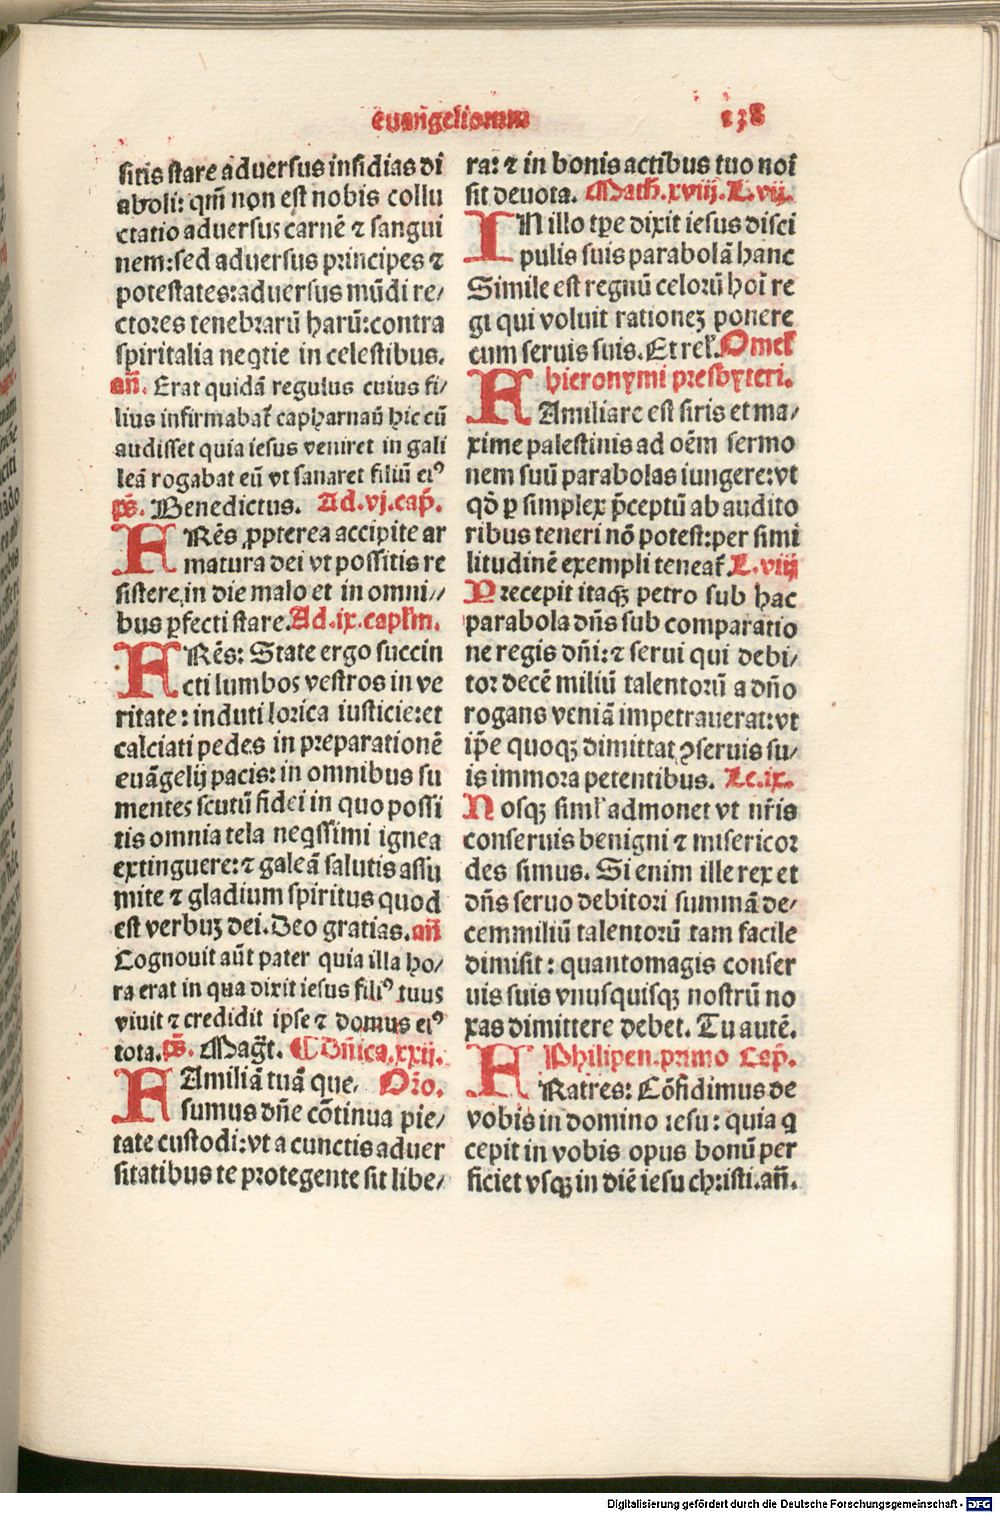 euāgeliorum 238
sitis stare aduersus insidias di
aboli: qm̄ non est nobis collu
ctatio aduersus carnē ⁊ sangui
nem: sed aduersus principes ⁊
potestates: aduersus mūdi re/
ctores tenebrarū harū: contra
spiritalia neqtie in celestibus.
añ. Erat quidā regulus cuius fi/
lius infirmabat̄ capharnaū hic cū
audisset quia iesus veniret in gali
leā rogabat eū vt sanaret filiū eiꝰ
p̄s. Benedictus. Ad.vj.cap̄.
FRēs ꝓpterea accipite ar
matura dei vt possitis re
sistere in die malo et in omni//
bus ꝑfecti stare. Ad.ix.capl̄m.
FRēs: State ergo succin
cti lumbos vestros in ve
ritate: induti lorica iusticie: et
calciati pedes in preparationē
euāgelij pacis: in omnibus su
mentes scutū fidei in quo possi
tis omnia tela neqssimi ignea
extinguere: ⁊ galeā salutis assu
mite ⁊ gladium spiritus quod
est verbuꝫ dei. Deo gratias. añ
Cognouit aūt pater quia illa ho/
ra erat in qua dixit iesus filiꝰ tuus
viuit ⁊ credidit ipse ⁊ domus eiꝰ
tota. p̄s. Maḡt. ¶ Dn̄ica.xxij.
FAmiliā tuā que, Or̄o.
sumus dn̄e cōtinua pie/
tate custodi: vt a cunctis aduer
sitatibus te protegente sit libe/
ra: ⁊ in bonis actibus tuo noī
sit deuota. Math̄.xviij. L.vij.
IN illo tp̄e dixit iesus disci
pulis suis parabolā hanc
Simile est regnū celorū hoī re
gi qui voluit rationeꝫ ponere
cum seruis suis. Et rel̄. Omel̄
hieronymi presbyteri.
FAmiliare est siris et ma/
xime palestinis ad oēm sermo
nem suū parabolas iungere: vt
qd̄ ꝑ simplex p̄ceptū ab audito
ribus teneri nō potest: per simi
litudinē exempli teneat̄ L.viij
Precepit itaqꝫ petro sub hac
parabola dn̄s sub comparatio
ne regis dn̄i: ⁊ serui qui debi/
tor decē miliū talentorū a dn̄o
rogans veniā impetrauerat: vt
ip̄e quoqꝫ dimittat ꝯseruis su/
is immora petentibus. Lc.ix.
Nosqꝫ simil̄ admonet vt nr̄is
conseruis benigni ⁊ misericor
des simus. Si enim ille rex et
dn̄s seruo debitori summā de/
cemmiliū talentorū tam facile
dimisit: quantomagis conser
uis suis vnusquisqꝫ nostrū no
xas dimittere debet. Tu autē.
Philipen. primo Cap̄.
FRatres: Cōfidimus de
vobis in domino iesu: quia q
cepit in vobis opus bonū per
ficiet vsqꝫ in diē iesu christi. añ.
Digitalisierung gefördert durch die Deutsche Forschungsgemeinschaft - DFG